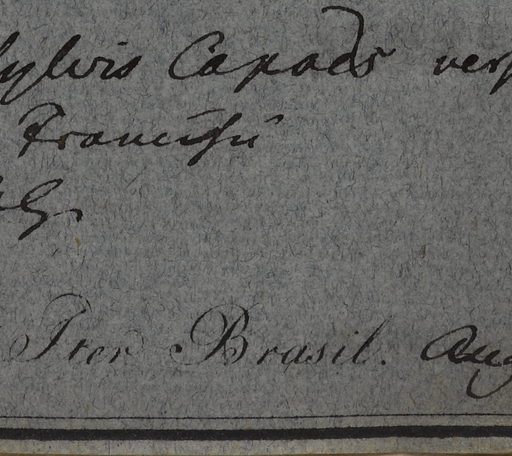 sylvis Capoës vers
Francisci
G.
Iter Brasil. Aug